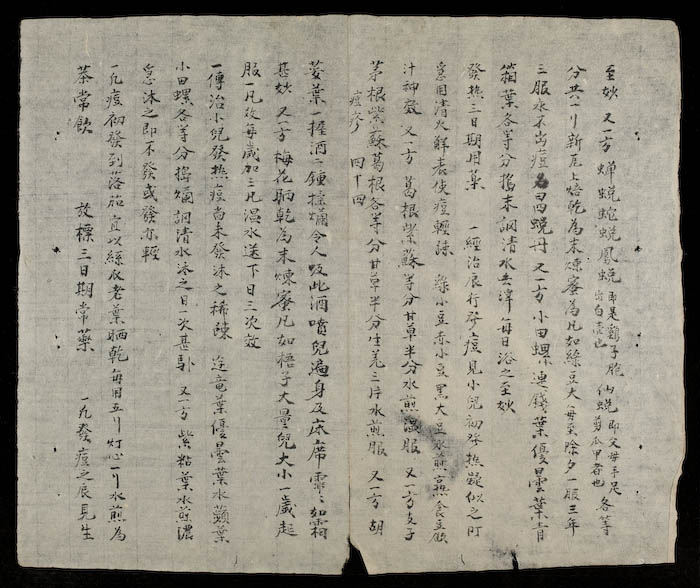 至妙　又一方　蟬蛻蛇蛻鳳蛻即是雞子胞出白壳也仙蛻即父母手足剪瓜甲者也各等
分共一刂新瓦上焙乾為末煉蜜為凡如綠豆大每至除夕一服三年
三服永不出痘名曰四蛻丹　又一方小田螺連錢葉優曇葉青
箱葉各等分搗末調清水去滓每日浴之至妙
發熱三日期用藥　一經治辰行發痘見小兒初發熱疑似之間
急用清火解表使痘輕疎　菉小豆赤小豆黑大豆水煎熟食豆飲
汁神效　又一方　葛根紫蘇等分甘草半分水煎温服　又一方
茅根紫蘇葛根各等分甘草半分生羌三片水煎服　又一方　胡
痘疹　四十四
葉一握酒二鍾擂爛令人吸此酒噴兒遍身及床席霏々如霜
甚妙　又一方　梅花晒乾為末煉蜜凡如梧子大量兒大小一歲起
服一凡放每歲加三凡温水送下日三次效
一傳治小兒發熱痘尚未發沐之稀疎　葉優曇葉水蘋葉
小田螺各等分搗爛調清水沐之日一次甚馭　又一方　紫粘葉水煎濃
息沐之即不發或發亦輕
一凡痘初發到落茄宜以絲瓜老葉晒乾每用五刂灯心一刂水煎為
茶常飲　放標三日期常藥　一凡發痘之辰見生